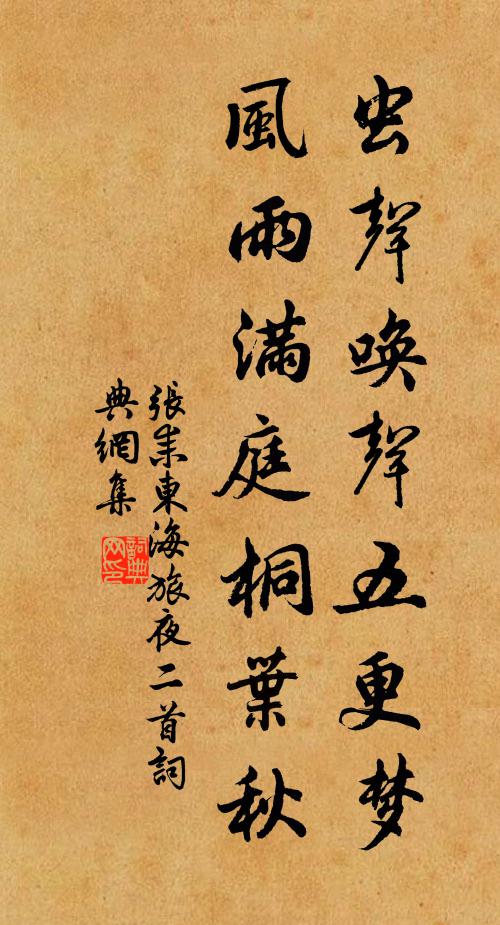 虫聲喚聲五更梦
風雨滿庭桐葉秋
張耒東海旅夜二首詞
典網集
詞典网印